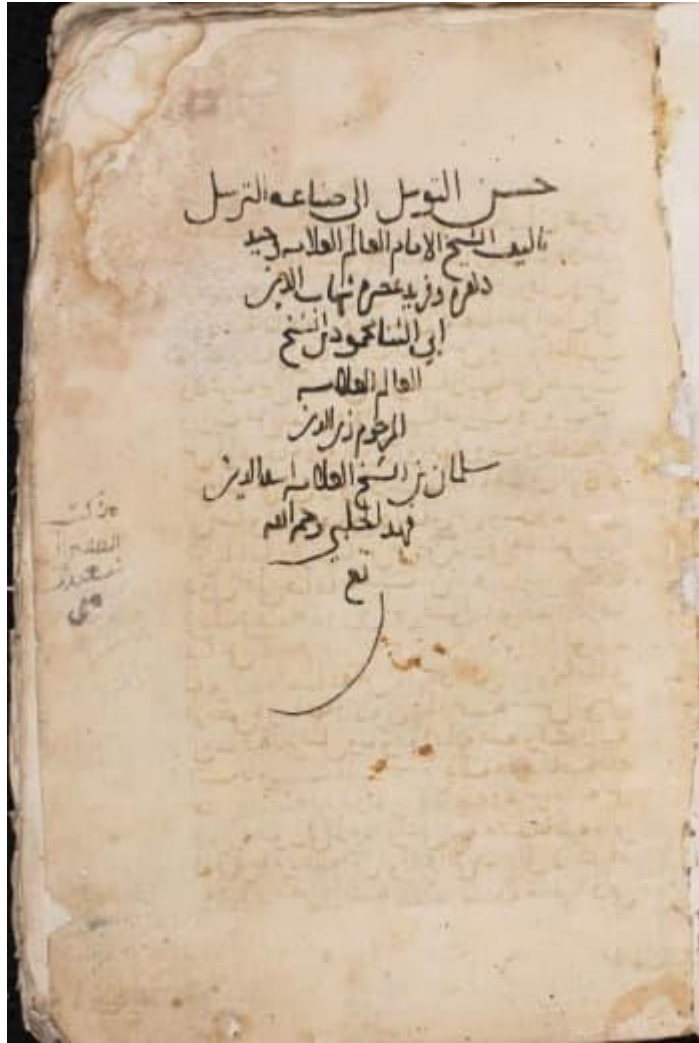 حسن التوسل الى صناعه الترسل
تاليف الشيخ الامام العالم العلامه وحيد
دهره وفريد عصره شهاب الدين
ابي الثنا محمود بن الشيخ
العالم العلامه
المرحوم زين الدين
سلمان بن الشيخ العلامه اسد الدين
فهد الحلبي رحمه الله
تع